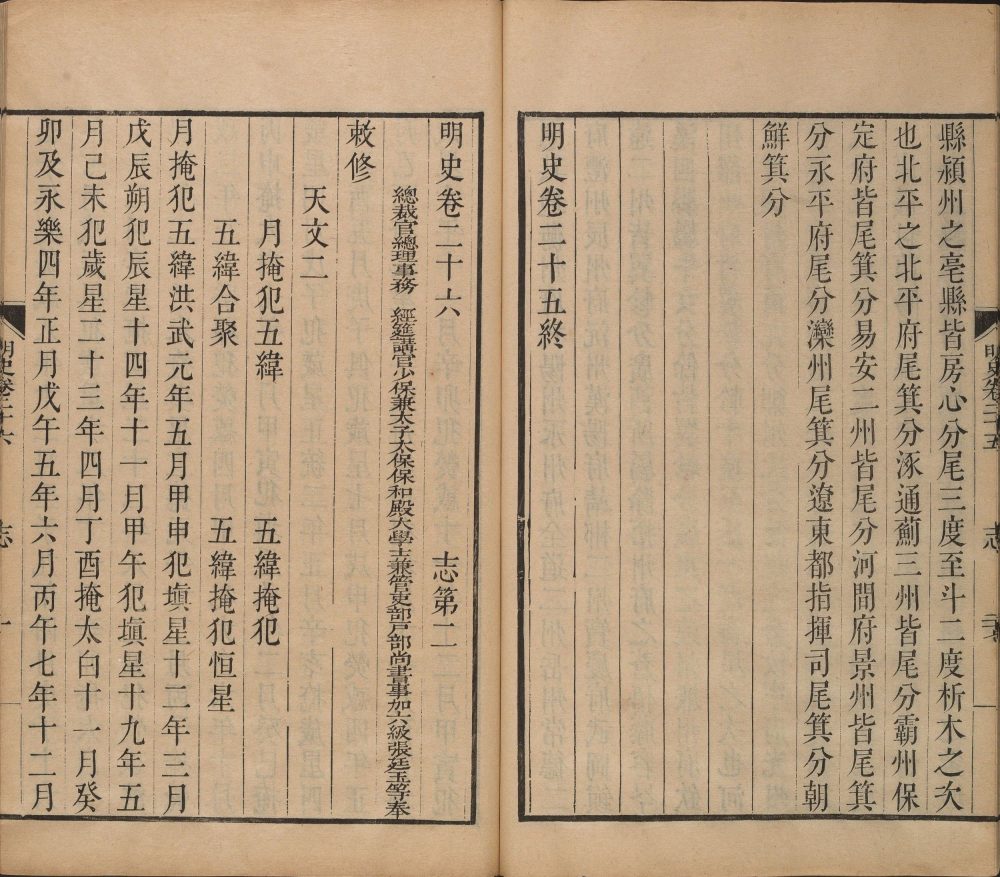 縣潁州之亳縣皆房心分尾三度至斗二度析木之次
也北平之北平府尾箕分涿通薊三州皆尾分霸州保
定府皆尾箕分易安二州皆尾分河間府景州皆尾箕
分永平府尾分灤州尾箕分遼東都指揮司尾箕分朝
鮮箕分
明史卷二十五終
明史卷二十五
志
明史卷二十六 志第二
總裁官總理事務 經筵講官少保兼太子太保保和殿大學士兼管吏部戶部尚書事加六級張廷玉等奉
敕修
天文二
月掩犯五緯 五緯掩犯
五緯合聚 五緯掩犯恒星
月掩犯五緯洪武元年五月甲申犯塡星十二年三月
戊辰朔犯辰星十四年十一月甲午犯塡星十九年五
月己未犯歲星二十三年四月丁酉掩太白十一月癸
卯及永樂四年正月戊午五年六月丙午七年十二月
明史卷二十六
志